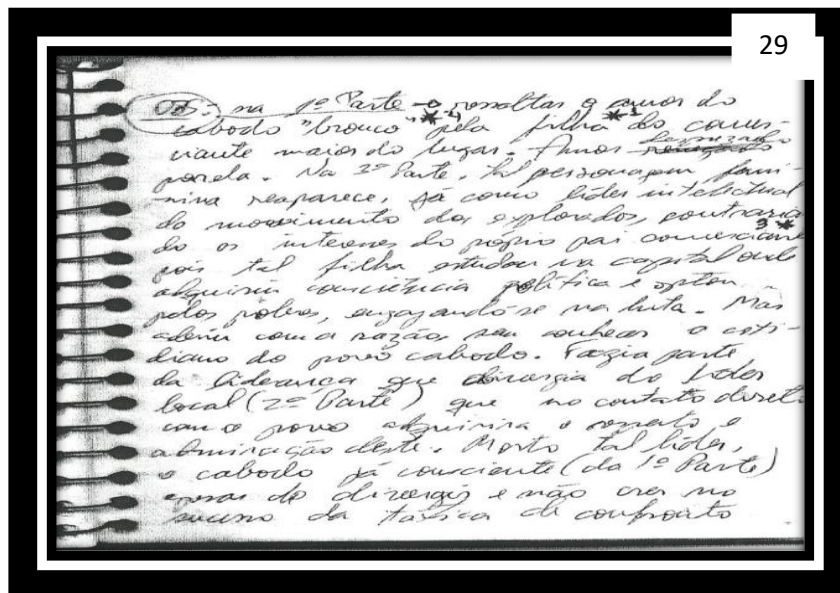 29
Obs: na 1ª Parte ressaltar o amor do
caboclo "bronco" pela filha do comer-
ciante maior do lugar. Amor desprezado
por ela. Na 2ª Parte, tal personagem femi-
nina reaparece, já como líder intelectual
do movimento dos explorados, contrarian
do os interesses do próprio pai comerciante
pois tal filha estudou na capital onde
adquiriu consciência política e optou
pelos pobres, engajando-se na luta. Mas
aderiu com a razão, sem conhecer o coti-
diano do povo caboclo. Fazia parte
da liderança que divergia do líder
local (2ª Parte) que no contato direto
com o povo adquirira o respeito e
admiração deste. Morto tal líder,
o caboclo já consciente (da 1ª Parte)
apesar de divergir e não crer no
sucesso da tática de confronto